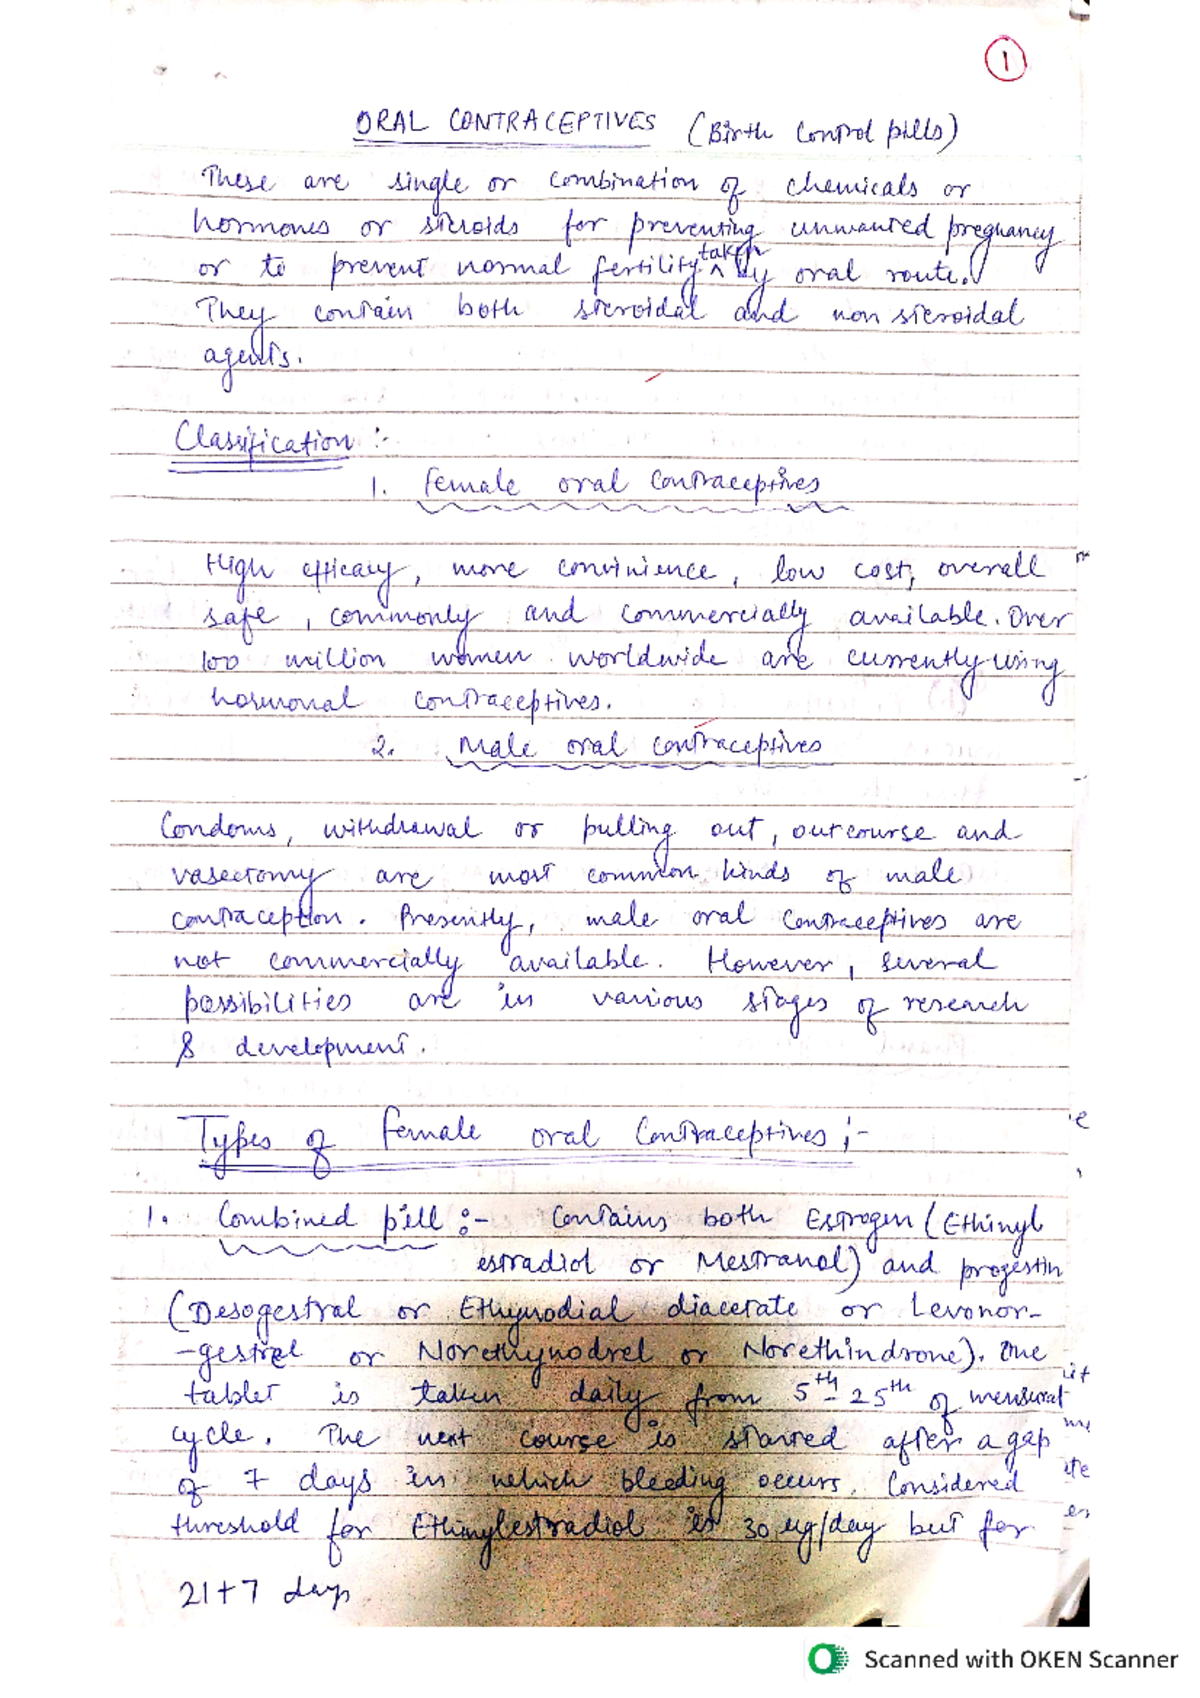 1
ORAL CONTRACEPTIVES (Birth Control pills)
These are single or combination of chemicals or
hormones or steroids for preventing unwanted pregnancy
or to prevent normal fertility taken by oral route.
They contain both steroidal and non steroidal
agents.
Classification :-
1. female oral contraceptives
High efficacy, more convinience, low cost, overall
safe, commonly and commercially available. Over
100 million women worldwide are currently using
hormonal contraceptives.
2. Male oral contraceptives
Condoms, withdrawal or pulling out, outcourse and
vasectomy are most common kinds of male
contraception. Presently, male oral contraceptives are
not commercially available. However, several
possibilities are in various stages of research
& development.
Types of female oral contraceptives ;-
1. Combined pill :- Contains both Estrogen (Ethinyl
estradiol or Mestranol) and progestin
(Desogestral or Ethynodial diacetate or Levonor-
-gestrel or Norethynodrel or Norethindrone). One
tablet is taken daily from 5th - 25th of mensural
cycle. The next course is started after a gap
of 7 days in which bleeding occurs. Considered
threshold for Ethinylestradiol is 30 ug/day but for
21+7 days
Scanned with OKEN Scanner